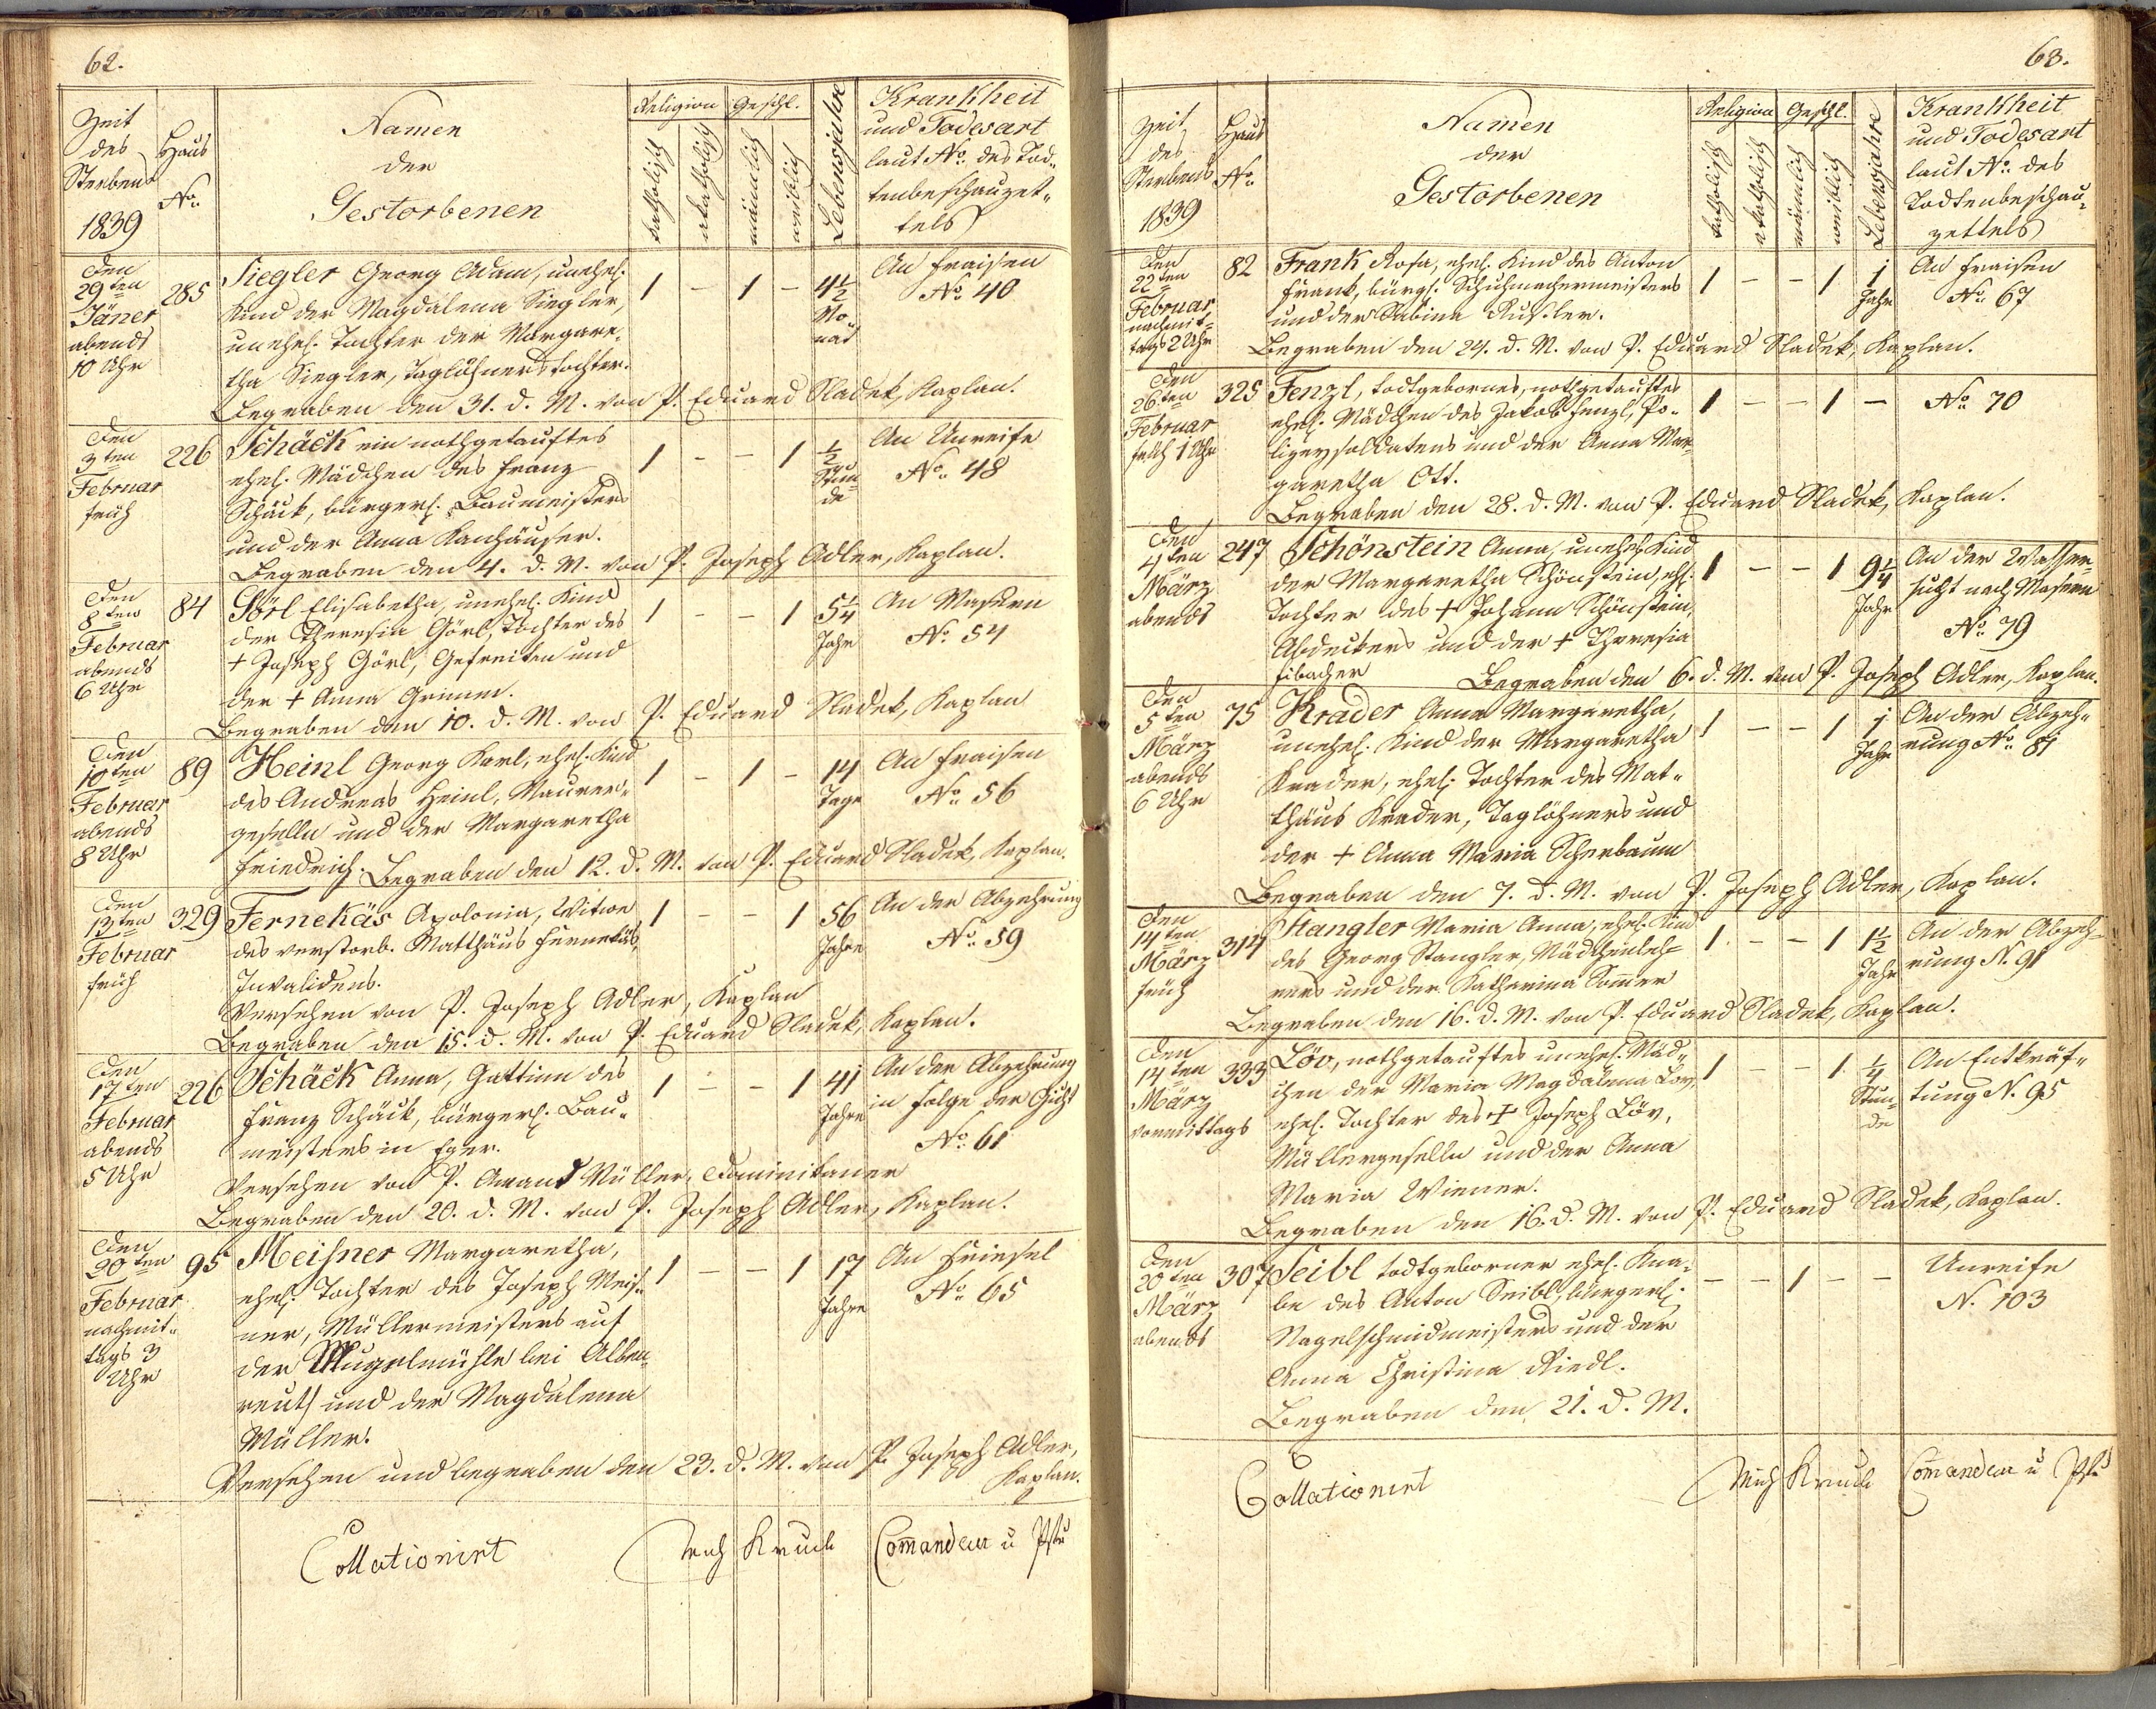 62.
Zeit
des
Sterbens
1839
Haus
No.
Namen
der
Gestorbenen
Religion
katholisch
akatholisch
Geschl.
männlich
weiblich
Lebensjahre
Krankheit
und Todesart
laut No. des Tod-
tenbeschauzet-
tels
Den
29ten
Jäner
abends
10 Uhr
285
Siegler Georg Adam, unehel.
Kind der Magdalena Siegler,
unehel. Tochter der Margare-
tha Siegler, Taglöhnerstochter.
1 - 1 - 4½
Mo-
nat
An Fraisen
No. 40
Begraben den 31. d. M. von P. Eduard Sladek, Kaplan.
Den
3ten
Februar
früh
226
Schäck ein nothgetauftes
ehel. Mädchen des Franz
Schäck, bürgerl. Baumeisters
und der Anna Kanhäuser.
1 - - 1 ½
Stun-
de
An Unreife
No. 48
Begraben den 4. d. M. von P. Joseph Adler, Kaplan.
Den
8ten
Februar
abends
6 Uhr
84
Görl Elisabetha, unehel. Kind
der Theresia Görl, Tochter des
+ Joseph Görl, Gefreiten und
der + Anna Grimm.
1 - - 1 5¼
Jahr
An Masern
No. 54
Begraben den 10. d. M. von P. Eduard Sladek, Kaplan
Den
10ten
Februar
abends
8 Uhr
89
Heinl Georg Karl, ehel. Kind
des Andreas Heinl, Maurer-
geselln und der Margaretha
Friedrich. Begraben den 12. d. M. von P. Eduard Sladek, Kaplan.
1 - 1 - 14
Tage
An Fraisen
No. 56
Den
13ten
Februar
früh
329
Fernekäs Apolonia, Witwe
des verstorb. Matthäus Fernekäs,
Invalidens.
1 - - 1 56
Jahre
An der Abzehrung
No. 59
Versehen von P. Joseph Adler, Kaplan
Begraben den 15. d. M. von P. Eduard Sladek, Kaplan.
Den
17ten
Februar
abends
5 Uhr
226
Schäck Anna, Gattinn des
Franz Schäck, bürgerl. Bau-
meisters in Eger.
1 - - 1 41
Jahre
An der Abzehrung
in Folge der Gicht
No. 61
Versehen von P. Amand Müller, Dominikaner
Begraben den 20. d. M. von P. Joseph Adler, Kaplan.
Den
20ten
Februar
nachmit-
tags 3
Uhr
95
Meißner Margaretha,
ehel. Tochter des Joseph Meiß-
ner, Müllermeisters auf
der Mugelmühle bei Alben-
reuth und der Magdalena
Müller.
1 - - 1 17
Jahre
An Friesel
No. 65
Versehen und begraben den 23. d. M. von P. Joseph Adler,
Kaplan.
Collationirt Comandeur u
63.
Zeit
des
Sterbens
1839
Haus
No.
Namen
der
Gestorbenen
Religion
katholisch
akatholisch
Geschl.
männlich
weiblich
Lebensjahre
Krankheit
und Todesart
laut No. des
Todtenbeschau-
zettels
Den
22ten
Februar
nachmit-
tags 2 Uhr
82
Frank Rosa, ehel. Kind des Anton
Frank, bürgl. Schuhmachermeisters
und der Sabina Rußler.
1 - - 1 1
Jahr
An Fraisen
No. 67
Begraben den 24. d. M. von P. Eduard Sladek, Kaplan.
Den
26ten
Februar
früh 1 Uhr
325
Fenzl, todtgebornes, nothgetauftes
ehel. Mädchen des Jakob Fenzl, Po-
lizeysoldatens und der Anna Mar-
garetha Ott.
1 - - 1 -
No. 70
Begraben den 28. d. M. von P. Eduard Sladek, Kaplan.
Den
4ten
März
abends
247
Schönstein Anna, unehel. Kind
der Margaretha Schönstein, ehl.
Tochter des + Johann Schönstein,
Abdeckers und der + Theresia
Eibacher
1 - - 1 9¼
Jahr
An der Wasser-
sucht nach Masern
No. 79
Begraben den 6. d. M. von P. Joseph Adler, Kaplan.
Den
5ten
März
abends
6 Uhr
75
Krader Anna Margaretha,
unehel. Kind der Margaretha
Krader, ehel. Tochter des Mat-
thäus Krader, Taglöhners und
der + Anna Maria Scherbaum
1 - - 1 1
Jahr
An der Abzeh-
rung No. 81
Begraben den 7. d. M. von P. Joseph Adler, Kaplan.
Den
14ten
März
früh
314
Stangler Maria Anna, ehel. Kind
des Georg Stangler, Mädchenleh-
rers und der Katharina Som̄er
1 - - 1 1½
Jahr
An der Abzeh-
rung N. 91
Begraben den 16. d. M. von P. Eduard Sladek, Kaplan.
Den
14ten
März
vormittags
333
Löv, nothgetauftes unehel. Mäd-
chen der Maria Magdalena Löv,
ehel. Tochter des + Joseph Löv,
Müllergeselln und der Anna
Maria Wiener.
1 - - 1 ¼
Stun-
de
An Entkräf-
tung N. 95
Begraben den 16. d. M. von P. Eduard Sladek, Kaplan.
Den
20ten
März
abends
307
Seibl todtgeborner ehel. Kna-
be des Anton Seibl, bürgerl.
Nagelschmidmeisters und der
Anna Christina Riedl.
- - 1 - -
Unreife
N. 103
Begraben den 21. d. M.
Collationirt Comandeur u